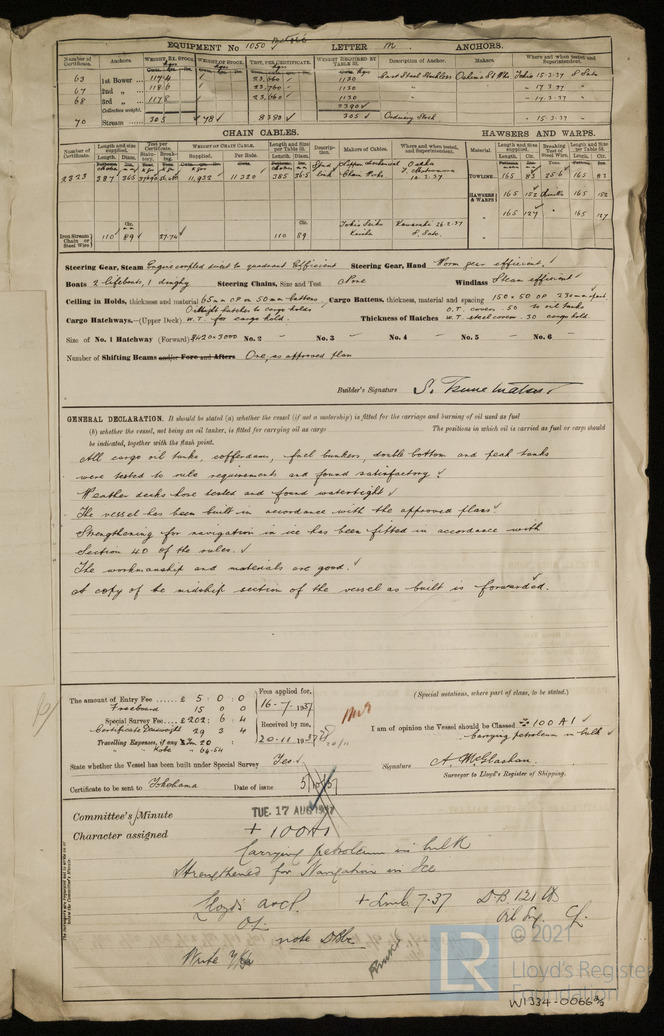 EQUIPMENT No 1050 LETTER M ANCHORS.
Number of Certificate. Anchors. WEIGHT, EX. STOCK. WEIGHT OF STOCK. TEST, PER CERTIFICATE. WEIGHT REQUIRED BY TABLE 31. Description of Anchor. Makers. Where and when tested and Superintendent.
63 1st Bower 1176 23,660 1130 Cast Steel Stockless Osaka St Wks Tokio 15.3.37 S Sato
67 2nd „ 1186 23,760 1130 „ 17.3.37 „
68 3rd „ 1178 23,660 1130 „ 17.3.37 „
Collective weight. 3390
70 Stream 305 78 8380 305 Ordinary Stock „ 15.3.37 „
CHAIN CABLES. HAWSERS AND WARPS.
Number of Certificate. Length and size supplied. Test per Certificate. WEIGHT OF CHAIN CABLE. Length and Size per Table 31. Description. Makers of Cables. Where and when tested, and Superintendent. Material. Length and Size supplied. Breaking Test of Steel Wire. Length and Size per Table 31.
Length. Diam. Statutory. Breaking. Supplied. Per Rule. Length. Diam. Length. Cir. Length. Cir.
2323 387 365 11,932 11320 385 36.5 Stud link Chain Works Osaka TOWLINE 165 83 25.6 165 83
HAWSERS & WARPS 165 152 165 152
„ 165 127 165 127
Iron Stream Chain or Steel Wire 110 89 27.74 110 89 Tokio Seiko Kaisha Kawasaki 26.2.37 S. Sato. „
Steering Gear, Steam Engine coupled direct to quadrant Efficient Steering Gear, Hand Worm gear efficient.
Boats 2 lifeboats, 1 dinghy Steering Chains, Size and Test None Windlass Steam efficient
Ceiling in Holds, thickness and material 65mm OP on 50mm battens Cargo Battens, thickness, material and spacing 150 x 50 OP 230mm apart
Cargo Hatchways.—(Upper Deck) W.T. for cargo hold. Thickness of Hatches O.T. covers .50 to oil tanks W.T. steel covers .30 cargo hold.
Size of No. 1 Hatchway (Forward) 8420 x 3000 No. 2 No. 3 No. 4 No. 5 No. 6
Number of Shifting Beams and/or Fore and Afters One, as approved plan
Builder's Signature
GENERAL DECLARATION. It should be stated (a) whether the vessel (if not a motorship) is fitted for the carriage and burning of oil used as fuel
(b) whether the vessel, not being an oil tanker, is fitted for carrying oil as cargo The positions in which oil is carried as fuel or cargo should
be indicated, together with the flash point.
All cargo oil tanks, cofferdams, fuel bunkers, double bottom and peak tanks
were tested to rule requirements and found satisfactory.
Weather decks hose tested and found watertight
The vessel has been built in accordance with the approved plans
Strengthening for navigation in ice has been fitted in accordance with
Section 40 of the rules.
The workmanship and materials are good.
A copy of the midship section of the vessel as built is forwarded.
The amount of Entry Fee £ 5 : 0 : 0
Freeboard 15 0 0
Special Survey Fee £ 202 : 6 : 4
Certificate Deadweight 29 3 4
Travelling Expenses, if any Yen 20 :
„ Kobe „ 64.54
Fees applied for, 16-7-1937
Received by me, 20-11-1937
(Special notations, where part of class, to be stated.)
I am of opinion the Vessel should be Classed 100 A 1
Carrying petroleum in bulk
State whether the Vessel has been built under Special Survey Yes
Signature A. McGlashan.
Surveyor to Lloyd's Register of Shipping.
Certificate to be sent to Yokohama Date of issue
Committee's Minute TUE. 17 AUG 1937
Character assigned + 100A1
Carrying petroleum in bulk
Strengthened for Navigation in Ice
Lloyds A&CP. + LMC 7.37 D.B. 121 lb
OL Oil Eng. CL.
note DBlr
Write
© 2021
LR Lloyd's Register
Foundation
W1334-0066 3/3